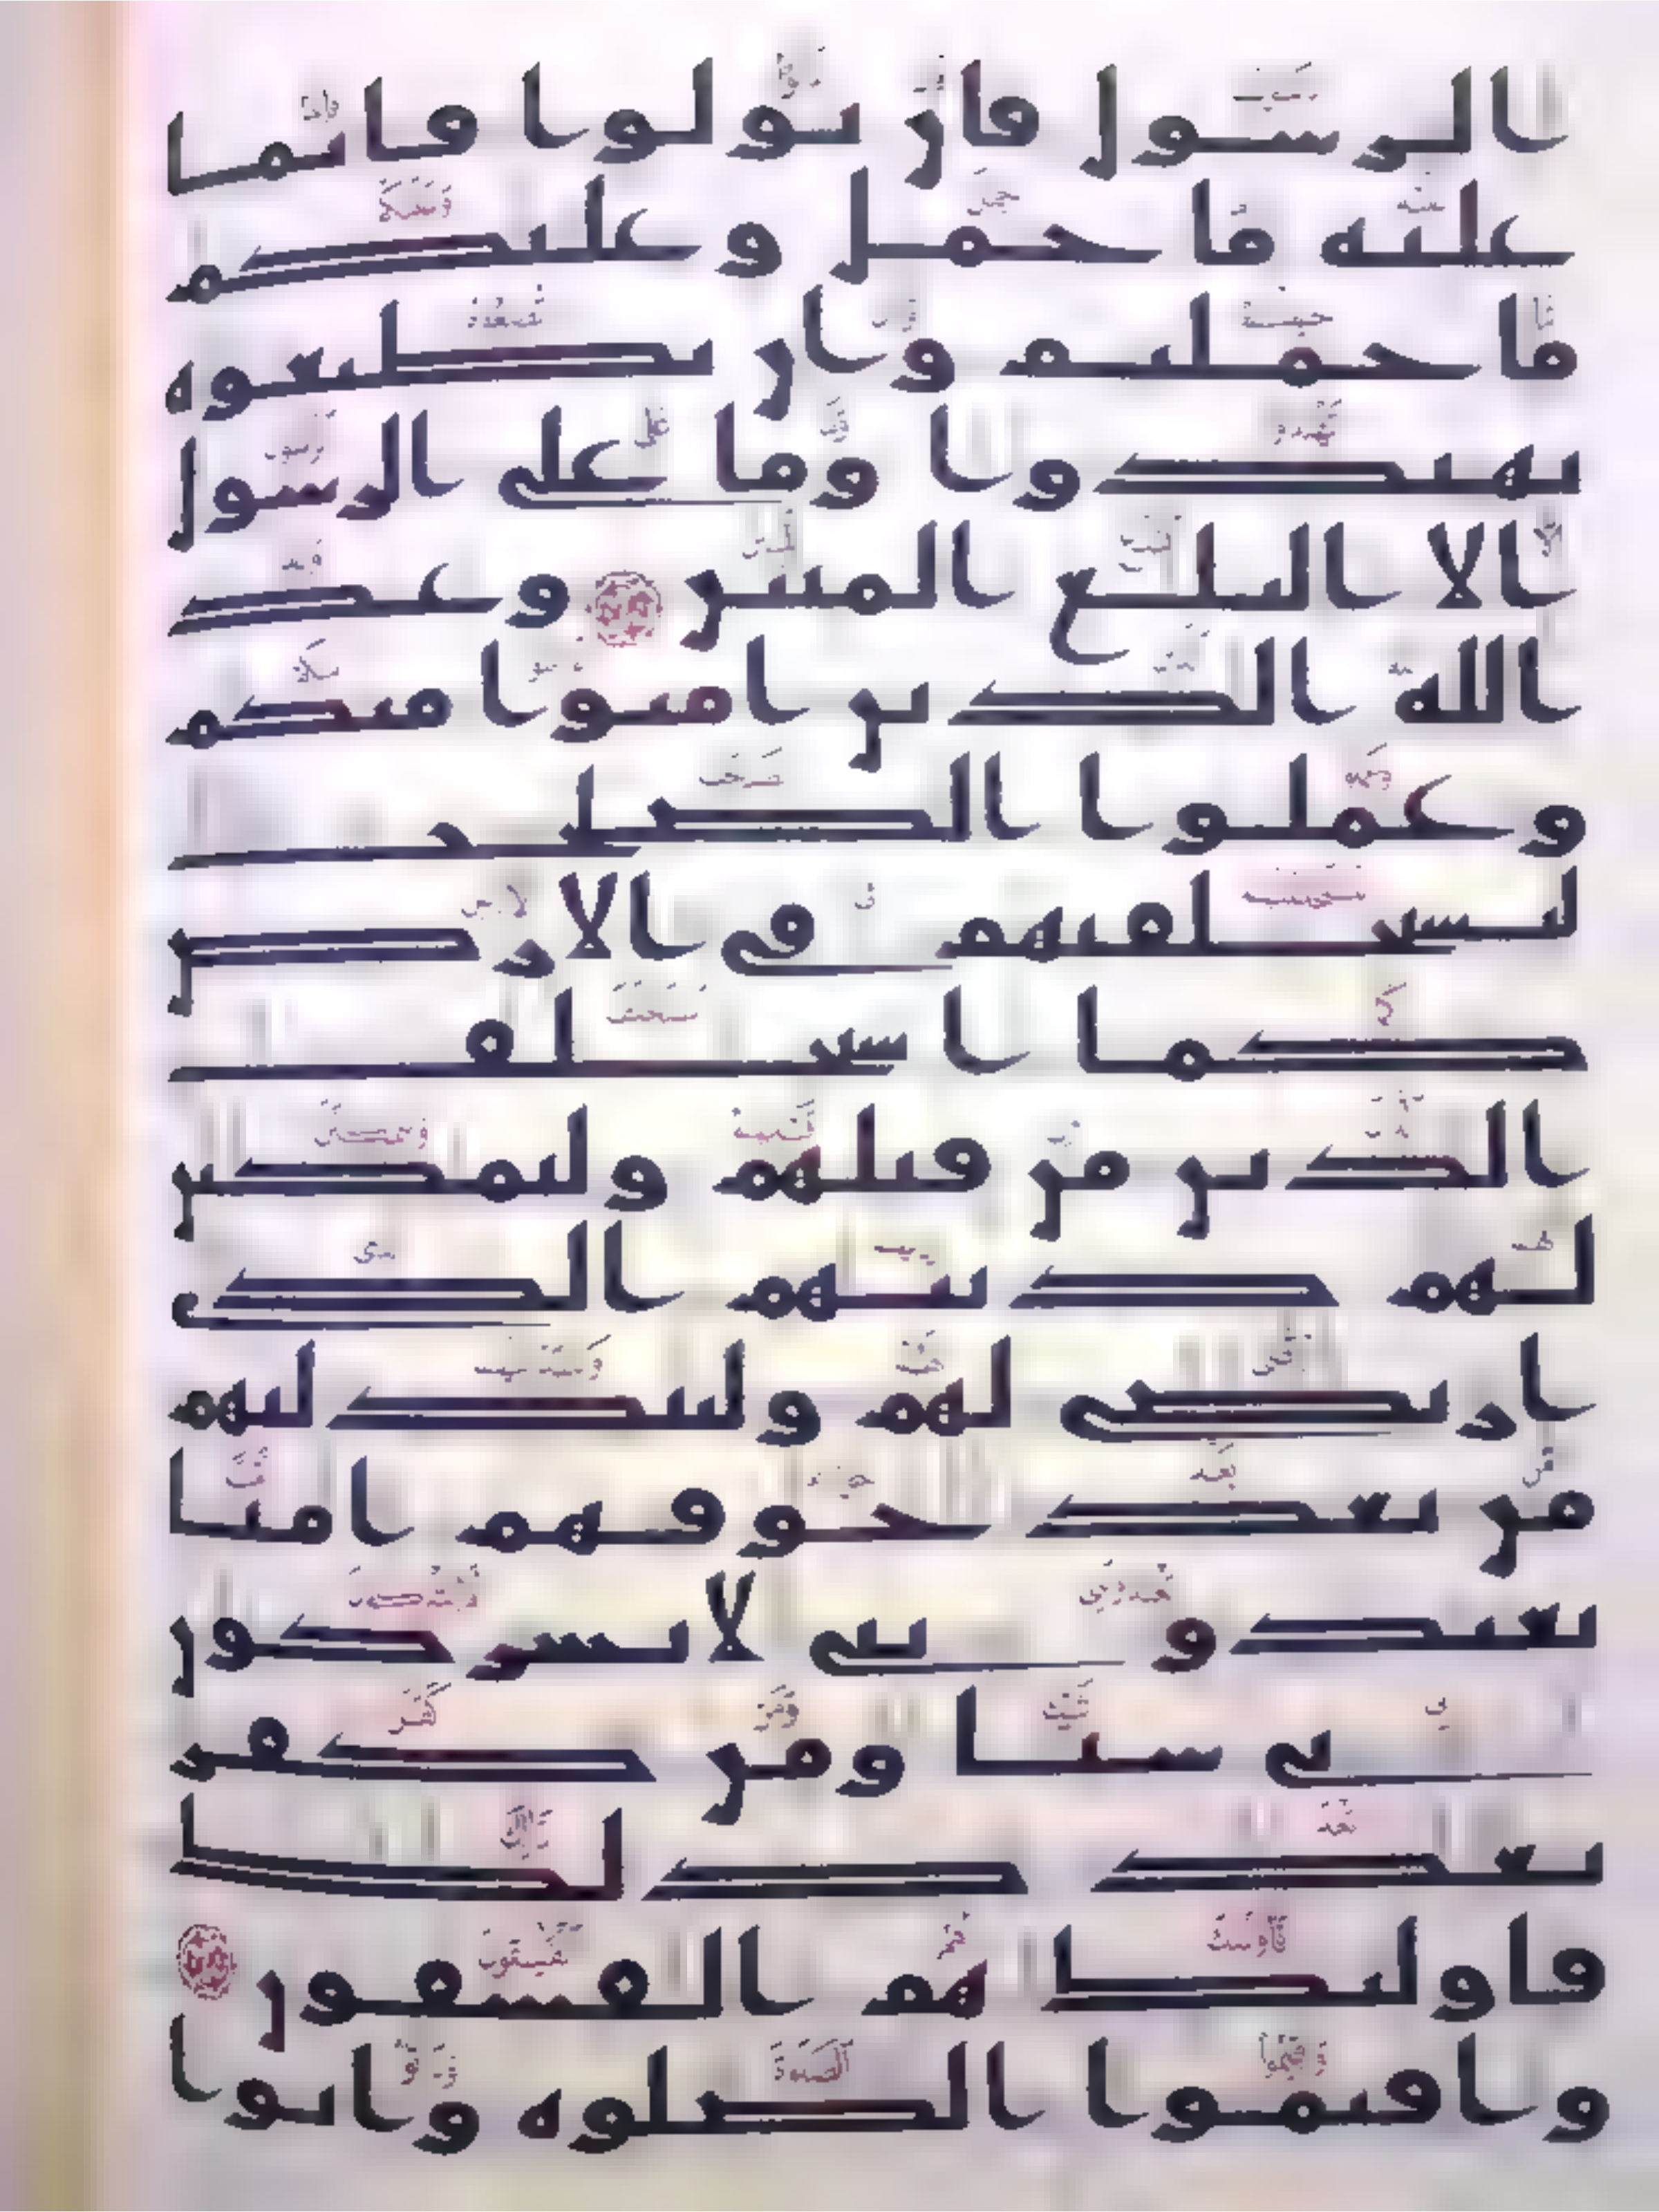 الرسول فان تولوا فانما
عليه ما حمل وعليكم
ما حملتم وان تطيعوه
تهتدوا وما على الرسول
الا البلغ المبين وعد
الله الذين امنوا منكم
وعملوا الصلحت
ليستخلفنهم في الارض
كما استخلف
الذين من قبلهم وليمكنن
لهم دينهم الذي
ارتضى لهم وليبدلنهم
من بعد خوفهم امنا
يعبدونني لا يشركون
بي شيئا ومن كفر
بعد ذلك
فاولئك هم الفسقون
واقيموا الصلوه واتوا